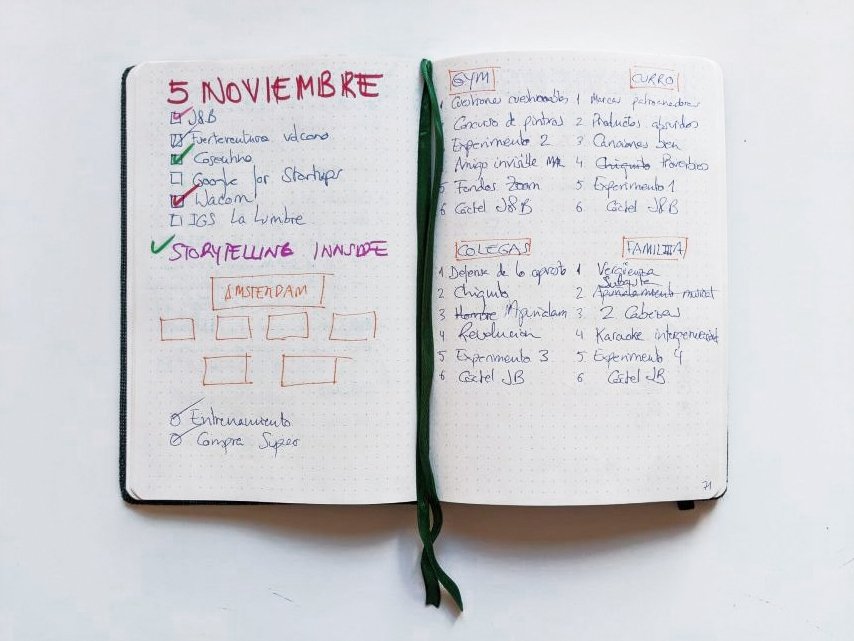 5 NOVIEMBRE
J&B
Fuerteventura volcano
Google for Startups
Wacom
IGS La Lumbre
STORYTELLING INNSIDE
AMSTERDAM
Entrenamiento
Compra Super
GYM
1 Cuestiones cuestionables
Concurso de pintxos
Experimento 2
Amigo invisible
5 Fondos Zoom
6 Cóctel J&B
CURRO
1 Marcas patrocinadoras
2 Productos absurdos
3 Canciones
4 Chiquito Proverbios
5 Experimento 1
6 Cóctel J&B
COLEGAS
1 Defensa de lo
2 Chiquito
3 Hombre
4 Revolución
5 Experimento 3
6 Cóctel JB
FAMILIA
1 Vergüenza
Subasta
2 Apuñalamiento musical
3 2 Cabezas
4 Karaoke intergeneracional
5 Experimento 4
6 Cóctel JB
71